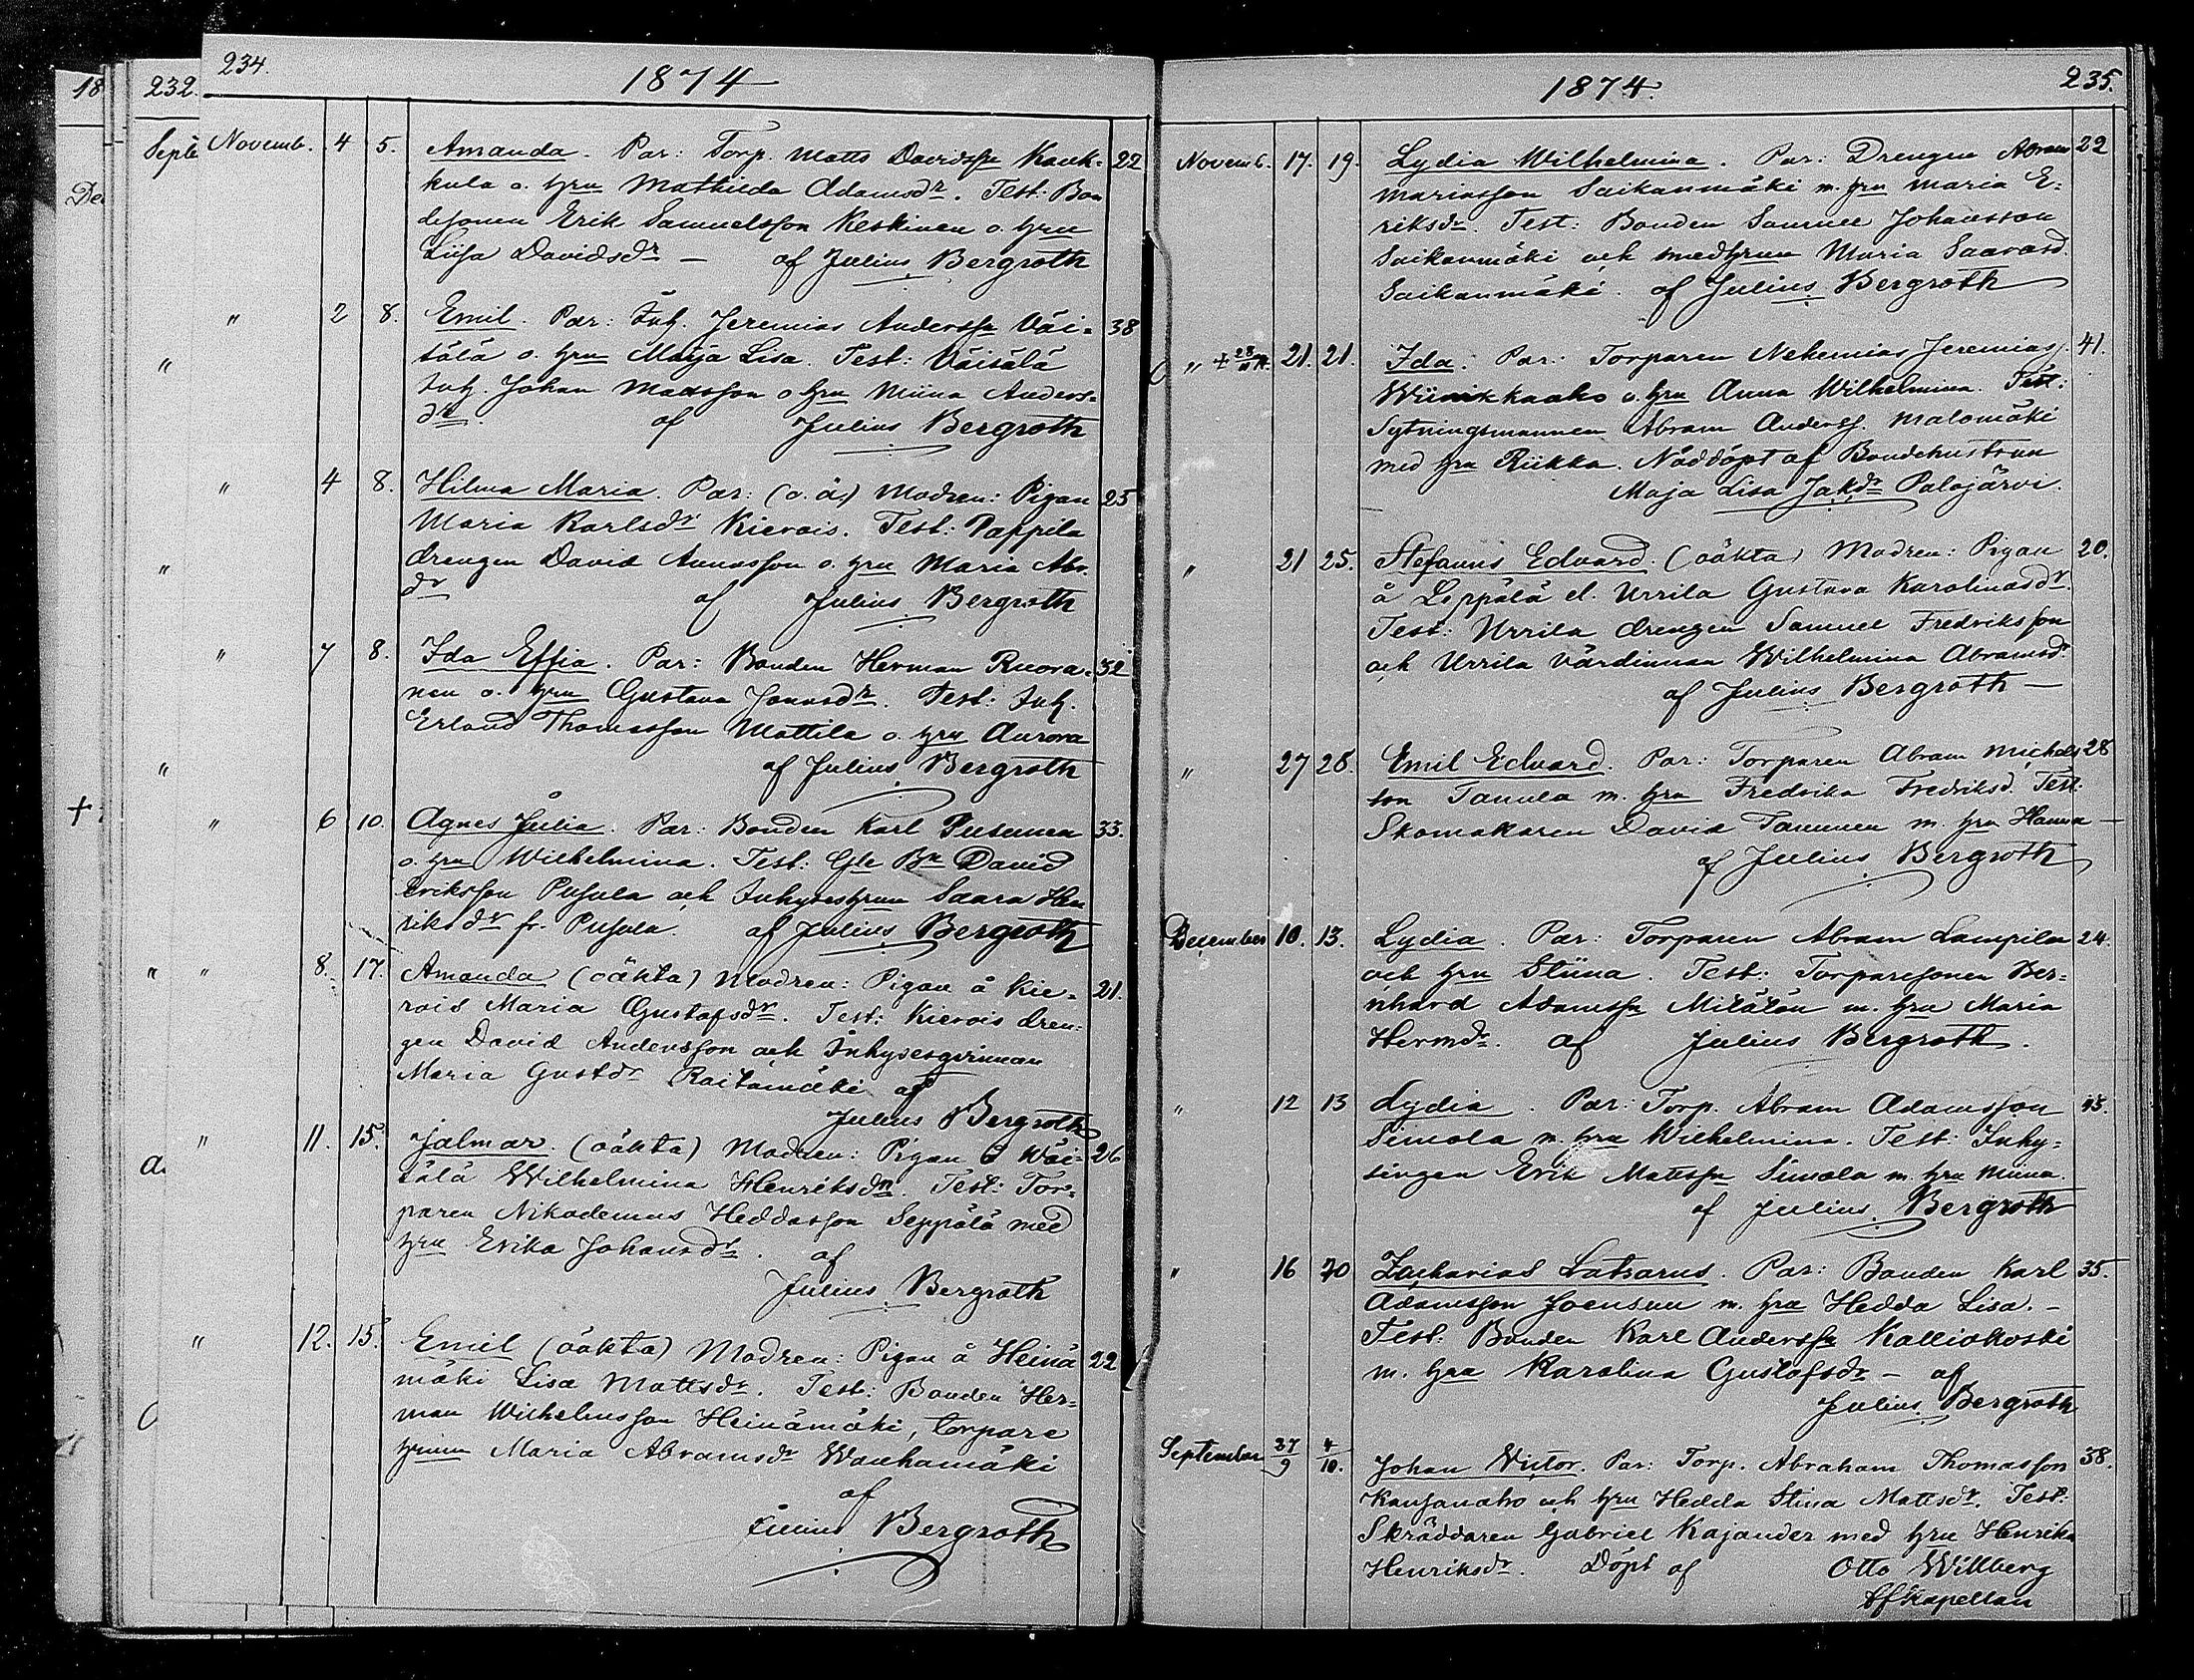 18
De
+
232.
Septe
234.
1874
Novemb. 4 5. Amanda. Par: Torp. Matts Davidssn Kauk- 22
kula o. hru Mathilda Adamsdr. Test: Bon
desonen Erik Samuelsson Keskinen o. hru
Liisa Davidsdr — af Julius Bergroth
" 2 8. Emil. Par: Inh. Jeremias Anderssn Väi- 38
tälä o. hru Maija Lisa. Test: Väisälä
Inh. Johan Mattsson o hru Miina Anders-
dr. af Julius Bergroth
" 4 8. Hilma Maria. Par: (o. ä.) Modren: Pigan 25
Maria Karlsdr Kierois. Test: Pappila
drengen David Annasson o. hru Maria Abr.
dr af Julius Bergroth
" 7 8. Ida Effia. Par: Bonden Herman Ruora- 32
nen o. hru Gustava Jonnsdr. Test: Inh.
Erland Thomasson Mattila o. hru Aurora
af Julius Bergroth
" 6 10. Agnes Julia. Par: Bonden Karl Pusunen 33.
o. hru Wilhelmina. Test: Gle Bn David
Eriksson Pusula och Inhyseshrun Saara Hen
riksdr fr. Pusula. af Julius Bergroth
" 8. 17. Amanda (oäkta) Modren: Pigan å Kie- 21.
rois Maria Gustafsdr. Test: Kierois dren-
gen David Andersson och Inhysesqvinnan
Maria Gustdr Raitamäki af
Julius Bergroth
" 11. 15. Jalmar. (oäkta) Modren: Pigan å Wäi- 26
tälä Wilhelmina Henriksdr. Test: Tor-
paren Nikodemus Heddasson Seppälä med
hru Erika Johansdr. af
Julius Bergroth
" 12. 15. Emil (oäkta) Modren: Pigan å Heinä 22
mäki Lisa Mattsdr. Test: Bonden Her-
man Wilhelmsson Heinämäki, torpare
hrun Maria Abramsdr Wanhamäki
af
Julius Bergroth
1874.
235.
Novemb. 17. 19. Lydia Wilhelmina. Par: Drengen Abram 22
Mariasson Saikanmäki m. hru Maria E-
riksdr. Test: Bonden Samuel Johansson
Saikanmäki och medhrun Maria Saarasd.
Saikanmäki. af Julius Bergroth
" + 28/11 21. 21. Ida. Par: Torparen Nehemias Jeremiass. 41.
Wiinikkaaho o. hru Anna Wilhelmina. Test:
Sytningsmannen Abram Anderss. Malomäki
med hru Riikka. Nöddöpt af Bondehustrun
Maja Lisa Jakdr Palojärvi.
" 21 25. Stefanus Edvard. (oäkta) Modren: Pigan 20.
å Leppälä el. Urrila Gustava Karolinasdr.
Test: Urrila drengen Samuel Fredriksson
och Urrila värdinnan Wilhelmina Abramsdr.
af Julius Bergroth —
" 27 28. Emil Edvard. Par: Torparen Abram Michels 28
son Tanula m. hru Fredrika Fredriksd. Test:
Skomakaren David Tammen m. hru Hanna —
af Julius Bergroth
December 10. 13. Lydia. Par: Torparen Abram Lampila 24.
och hru Stiina. Test: Torparesonen Ber-
nhard Adamssn Mitätön m. hru Maria
Hermdr. af Julius Bergroth.
" 12 13 Lydia. Par: Torp. Abram Adamsson 45.
Simola m. hru Wilhelmina. Test: Inhy-
singen Erik Mattssn Simola m. hru Miina.
af Julius Bergroth
" 16 20 Zacharias Latsarus. Par: Bonden Karl 35.
Adamsson Joensuu m. hru Hedda Lisa. —
Test: Bonden Karl Anderssn Kalliokoski
m. hru Karolina Gustafsdr — af
Julius Bergroth
September 27/9 4/10. Johan Victor. Par: Torp. Abraham Thomasson 38.
Kansanaho och hru Hedda Stina Mattsdr. Test:
Skräddaren Gabriel Kajander med hru Henrika
Henriksdr. Döpt af Otto Willberg
Kapellan